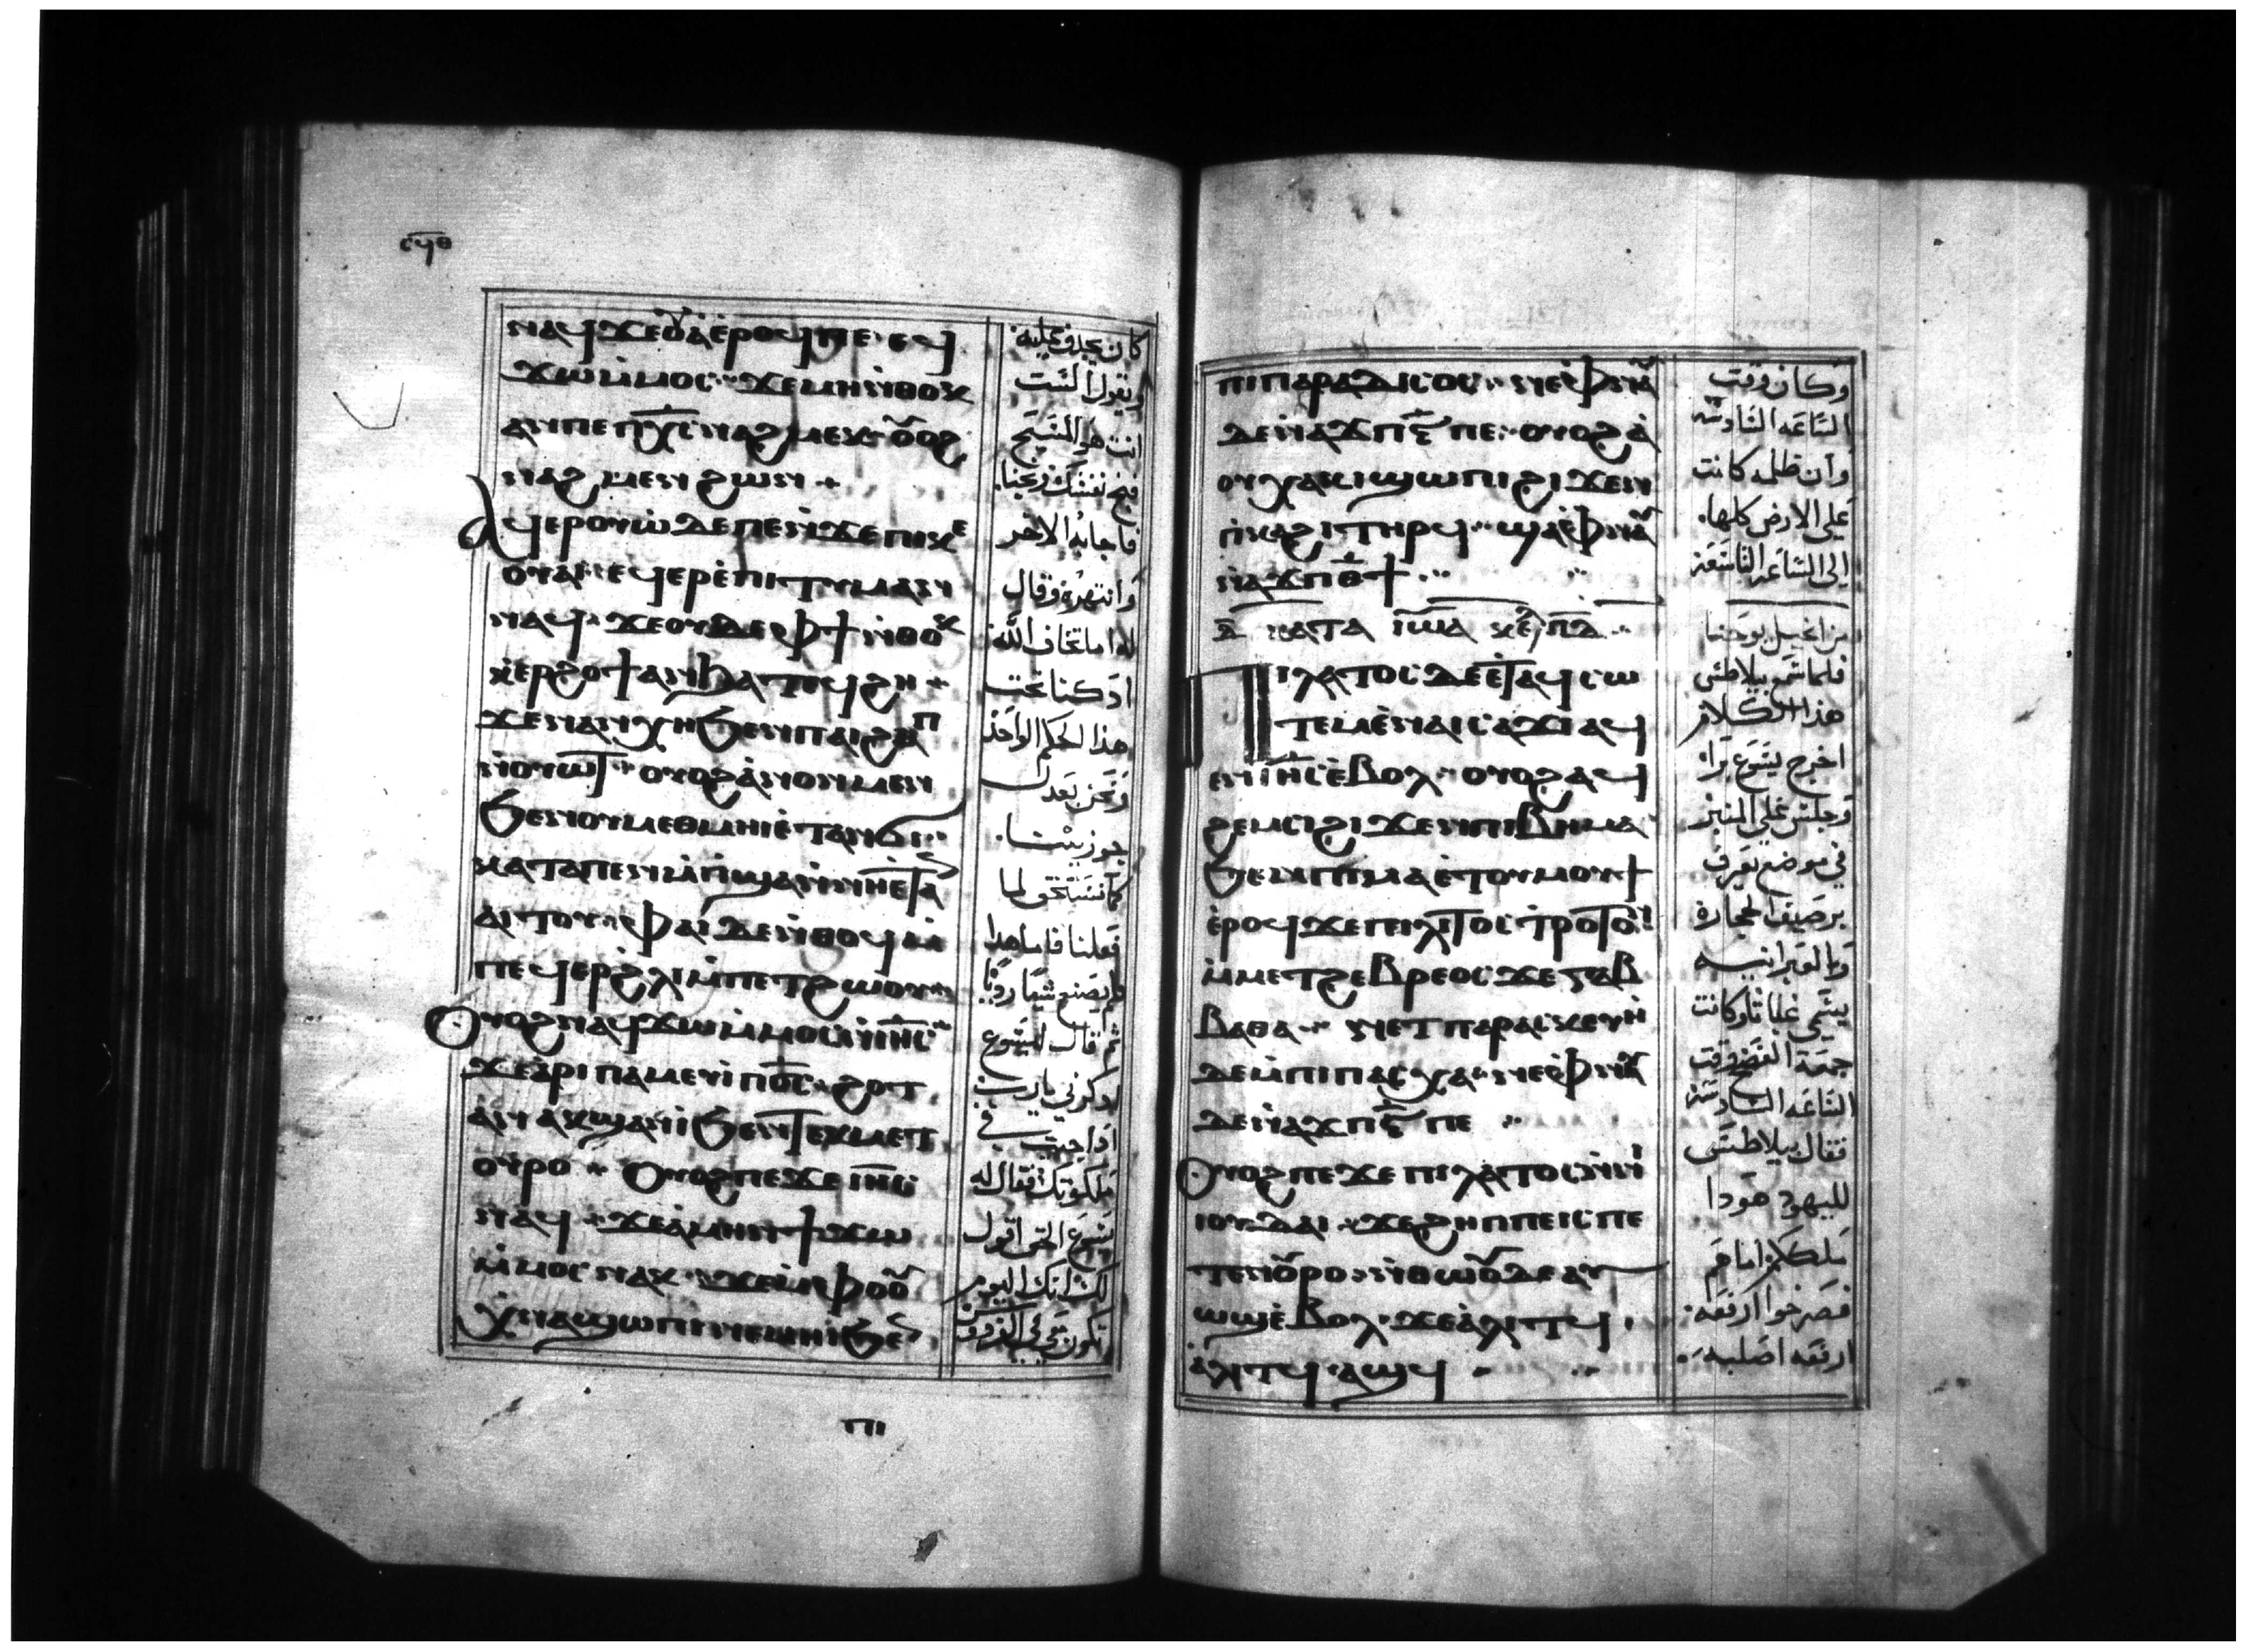 ⲥϥⲑ
ⲛⲁϥϫⲉⲟⲩⲁ ⲉⲣⲟϥ ⲡⲉ ⲉϥ
ϫⲱ ⲙⲙⲟⲥ ϫⲉ ⲙⲏ ⲛⲑⲟⲕ
ⲁⲛ ⲡⲉ ⲡⲭ̅ⲥ̅ ⲛⲁϩⲙⲉⲕ ⲟⲩⲟϩ
ⲛⲁϩⲙⲉⲛ ϩⲱⲛ
ⲁϥⲉⲣⲟⲩⲱ ⲇⲉ ⲡⲉ ⲛϫⲉ ⲡⲓⲕⲉ
ⲟⲩⲁⲓ ⲉϥⲉⲣⲉⲡⲓⲧⲩⲙⲁⲛ
ⲛⲁϥ ϫⲉ ⲟⲩⲇⲉ ⲫϯ ⲛⲑⲟⲕ
ⲕⲉⲣϩⲟϯ ⲁⲛ ϧⲁⲧⲉϥϩⲏ
ϫⲉ ⲛⲁⲛⲭⲏ ϧⲉⲛ ⲡⲁⲓϩⲁⲡ
ⲛⲟⲩⲱⲧ ⲟⲩⲟϩ ⲁⲛⲟⲛ ⲙⲉⲛ
ϧⲉⲛ ⲟⲩⲙⲉⲑⲙⲏⲓ ⲉⲧⲁⲛϭⲓ
ⲕⲁⲧⲁ ⲡⲉⲙⲡϣⲁ ⲛⲛⲏ ⲉⲧⲁⲛ
ⲁⲓⲧⲟⲩ ⲫⲁⲓ ⲇⲉ ⲛⲑⲟϥ ⲙ
ⲡⲉϥⲉⲣ ϩⲗⲓ ⲙⲡⲉⲧϩⲱⲟⲩ
ⲟⲩⲟϩ ⲛⲁϥϫⲱ ⲙⲙⲟⲥ ⲛⲓⲏ̅ⲥ̅
ϫⲉ ⲁⲣⲓⲡⲁⲙⲉⲩⲓ ⲡⲟ̅ⲥ̅ ϩⲟⲧ
ⲁⲛ ⲁⲕϣⲁⲛⲓ ϧⲉⲛ ⲧⲉⲕⲙⲉⲧ
ⲟⲩⲣⲟ ⲟⲩⲟϩ ⲡⲉϫⲉ ⲓⲏ̅ⲥ̅
ⲛⲁϥ ϫⲉ ⲁⲙⲏⲛ ϯϫⲱ
ⲙⲙⲟⲥ ⲛⲁⲕ ϫⲉ ⲙⲫⲟⲟⲩ
ⲭⲛⲁϣⲱⲡⲓ ⲛⲉⲙⲏⲓ ϧⲉⲛ
كان يجدف عليه
ويقول الست
انت هو المسيح
فنج نفسك ونجنا
فاجابه الاخر
وانتهره وقال
له اما تخاف الله
اذ كنا تحت
هذا الحكم الواحد
ونحن بعدل
جوزينا
كما نستحق لما
فعلنا فاما هذا
فلم يصنع شيا رديا
ثم قال ليسوع
اذكرني يارب
اذا جيت في
ملكوتك فقال له
يسوع الحق اقول
لك انك اليوم
تكون معي في الفردوس
ⲡⲓ
ⲡⲓⲡⲁⲣⲁⲇⲓⲥⲟⲥ ⲛⲉ ⲫⲛⲁⲩ
ⲇⲉ ⲛⲁϫⲡ ⲋ̅ ⲡⲉ ⲟⲩⲟϩ ⲁ
ⲟⲩⲭⲁⲕⲓ ϣⲱⲡⲓ ϩⲓϫⲉⲛ
ⲡⲕⲁϩⲓ ⲧⲏⲣϥ ϣⲁ ⲫⲛⲁⲩ
ⲛⲁϫⲡ ⲑ̅ϯ
ⲇ̅ ⲕⲁⲧⲁ ⲓⲱⲁ ⲕⲉⲫ ⲡⲇ̅
ⲡⲓⲗⲁⲧⲟⲥ ⲇⲉ ⲉⲧⲁϥⲥⲱ
ⲧⲉⲙ ⲉⲛⲁⲓⲥⲁϫⲓ ⲁϥ
ⲉⲛ ⲓⲏ̅ⲥ̅ ⲉⲃⲟⲗ ⲟⲩⲟϩ ⲁϥ
ϩⲉⲙⲥⲓ ϩⲓϫⲉⲛ ⲡⲓⲃⲏⲙⲁ
ϧⲉⲛ ⲡⲓⲙⲁ ⲉⲧⲟⲩⲙⲟⲩϯ
ⲉⲣⲟϥ ϫⲉ ⲡⲓⲗⲓⲧⲟⲥⲧⲣⲟⲧⲟⲛ
ⲙⲙⲉⲧϩⲉⲃⲣⲉⲟⲥ ϫⲉ ⲅⲁⲃ
ⲃⲁⲑⲁ ⲛⲉ ⲧⲡⲁⲣⲁⲥⲕⲉⲩⲏ
ⲇⲉ ⲙⲡⲓⲡⲁⲥⲭⲁ ⲛⲉ ⲫⲛⲁⲩ
ⲇⲉ ⲛⲁϫⲡ ⲋ̅ ⲡⲉ
ⲟⲩⲟϩ ⲡⲉϫⲉ ⲡⲓⲗⲁⲧⲟⲥ ⲛⲛⲓ
ⲓⲟⲩⲇⲁⲓ ϫⲉ ϩⲏⲡⲡⲉ ⲓⲥ ⲡⲉ
ⲧⲉⲛⲟⲩⲣⲟ ⲛⲑⲱⲟⲩ ⲇⲉ ⲁⲩ
ⲱϣ ⲉⲃⲟⲗ ϫⲉ ⲁⲗⲓⲧϥ
ⲁⲗⲓⲧϥ ⲁϣϥ
وكان وقت
الساعه السادسه
وان ظلمه كانت
على الارض كلها
الى الساعه التاسعه
من انجيل يوحنا
فلما سمع بيلاطس
هذا الكلام
اخرج يسوع برا
وجلس على المنبر
في موضع يعرف
برصيف الحجارة
وبالعبرانيه
يسمى غباثا وكانت
جمعة الفصح وقت
الساعه السادسه
فقال بيلاطس
لليهود هودا
ملككم اما هم
فصرخوا ارفعه
ارفعه اصلبه